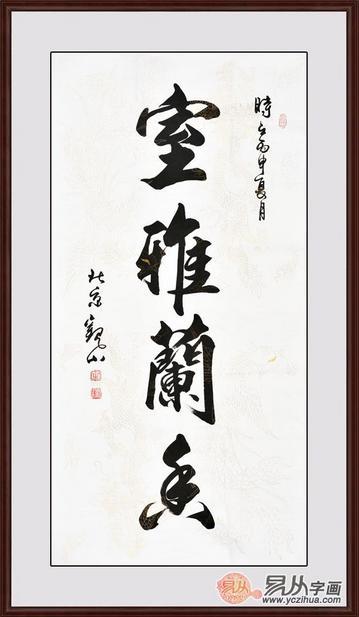 時在丙申夏月
室雅蘭香
北京觀山
易从字画
www.yczihua.com